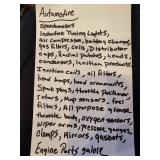 Automotive
Speedometers
Inductive Timing Lights,
Air compressor, battery chargers,
gas filters, coils, Distributor
caps, Radial pulleys, heads,
condensers, Ignition products,
Ignition coils, oil filters,
head lamps, hood ornaments,
Spark plugs, throttle Positioner
Rotors, Map sensors, fuel
filters, All purpose grease
throttle body, oxygen sensors,
wiper arms, Pressure gauges,
Clamps, Mirrors, gaskets,
Engine Parts galore